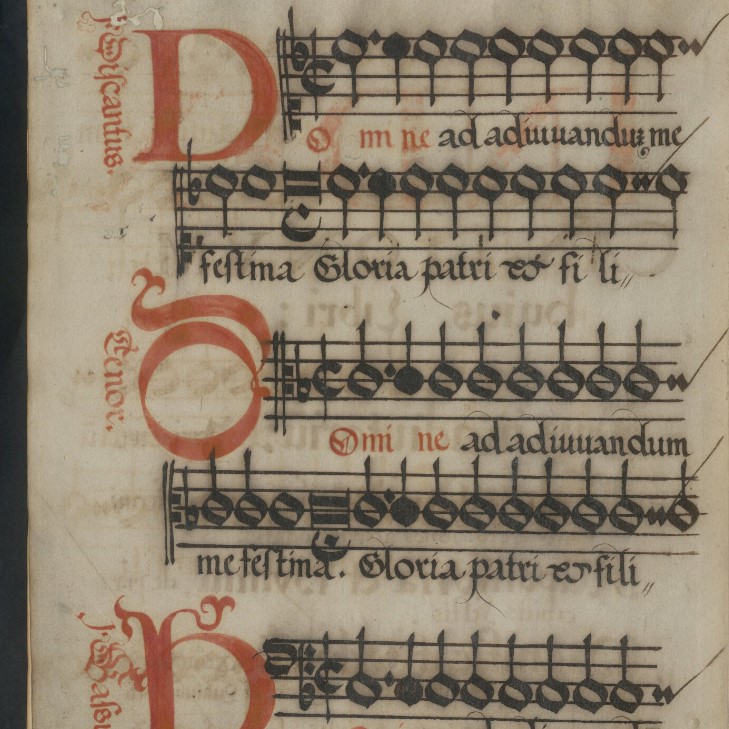 j. Discantus.
D O mi ne ad adiuuanduꝫ me
festina Gloria patri et fi li,,
Tenor.
D Omi ne ad adiuuandum
me festina. Gloria patri et fili,,
j. Bassus
D